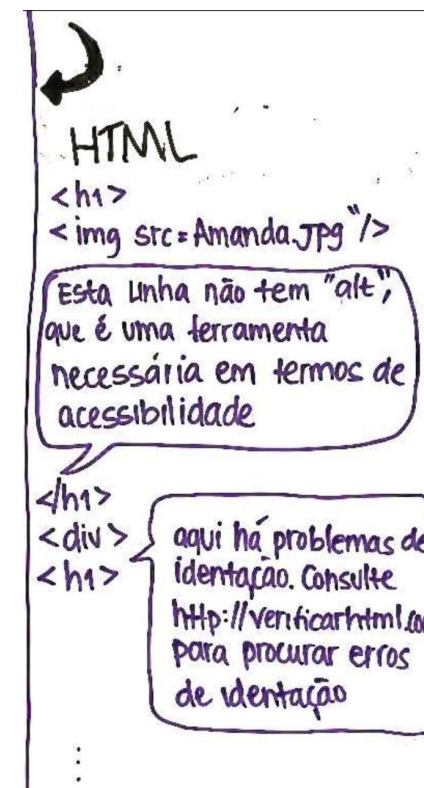 HTML
<h1>
<img src=Amanda.jpg"/>
Esta linha não tem "alt",
que é uma ferramenta
necessária em termos de
acessibilidade
</h1>
<div>
<h1>
aqui há problemas de
identação. Consulte
http://verificarhtml.co
para procurar erros
de identação